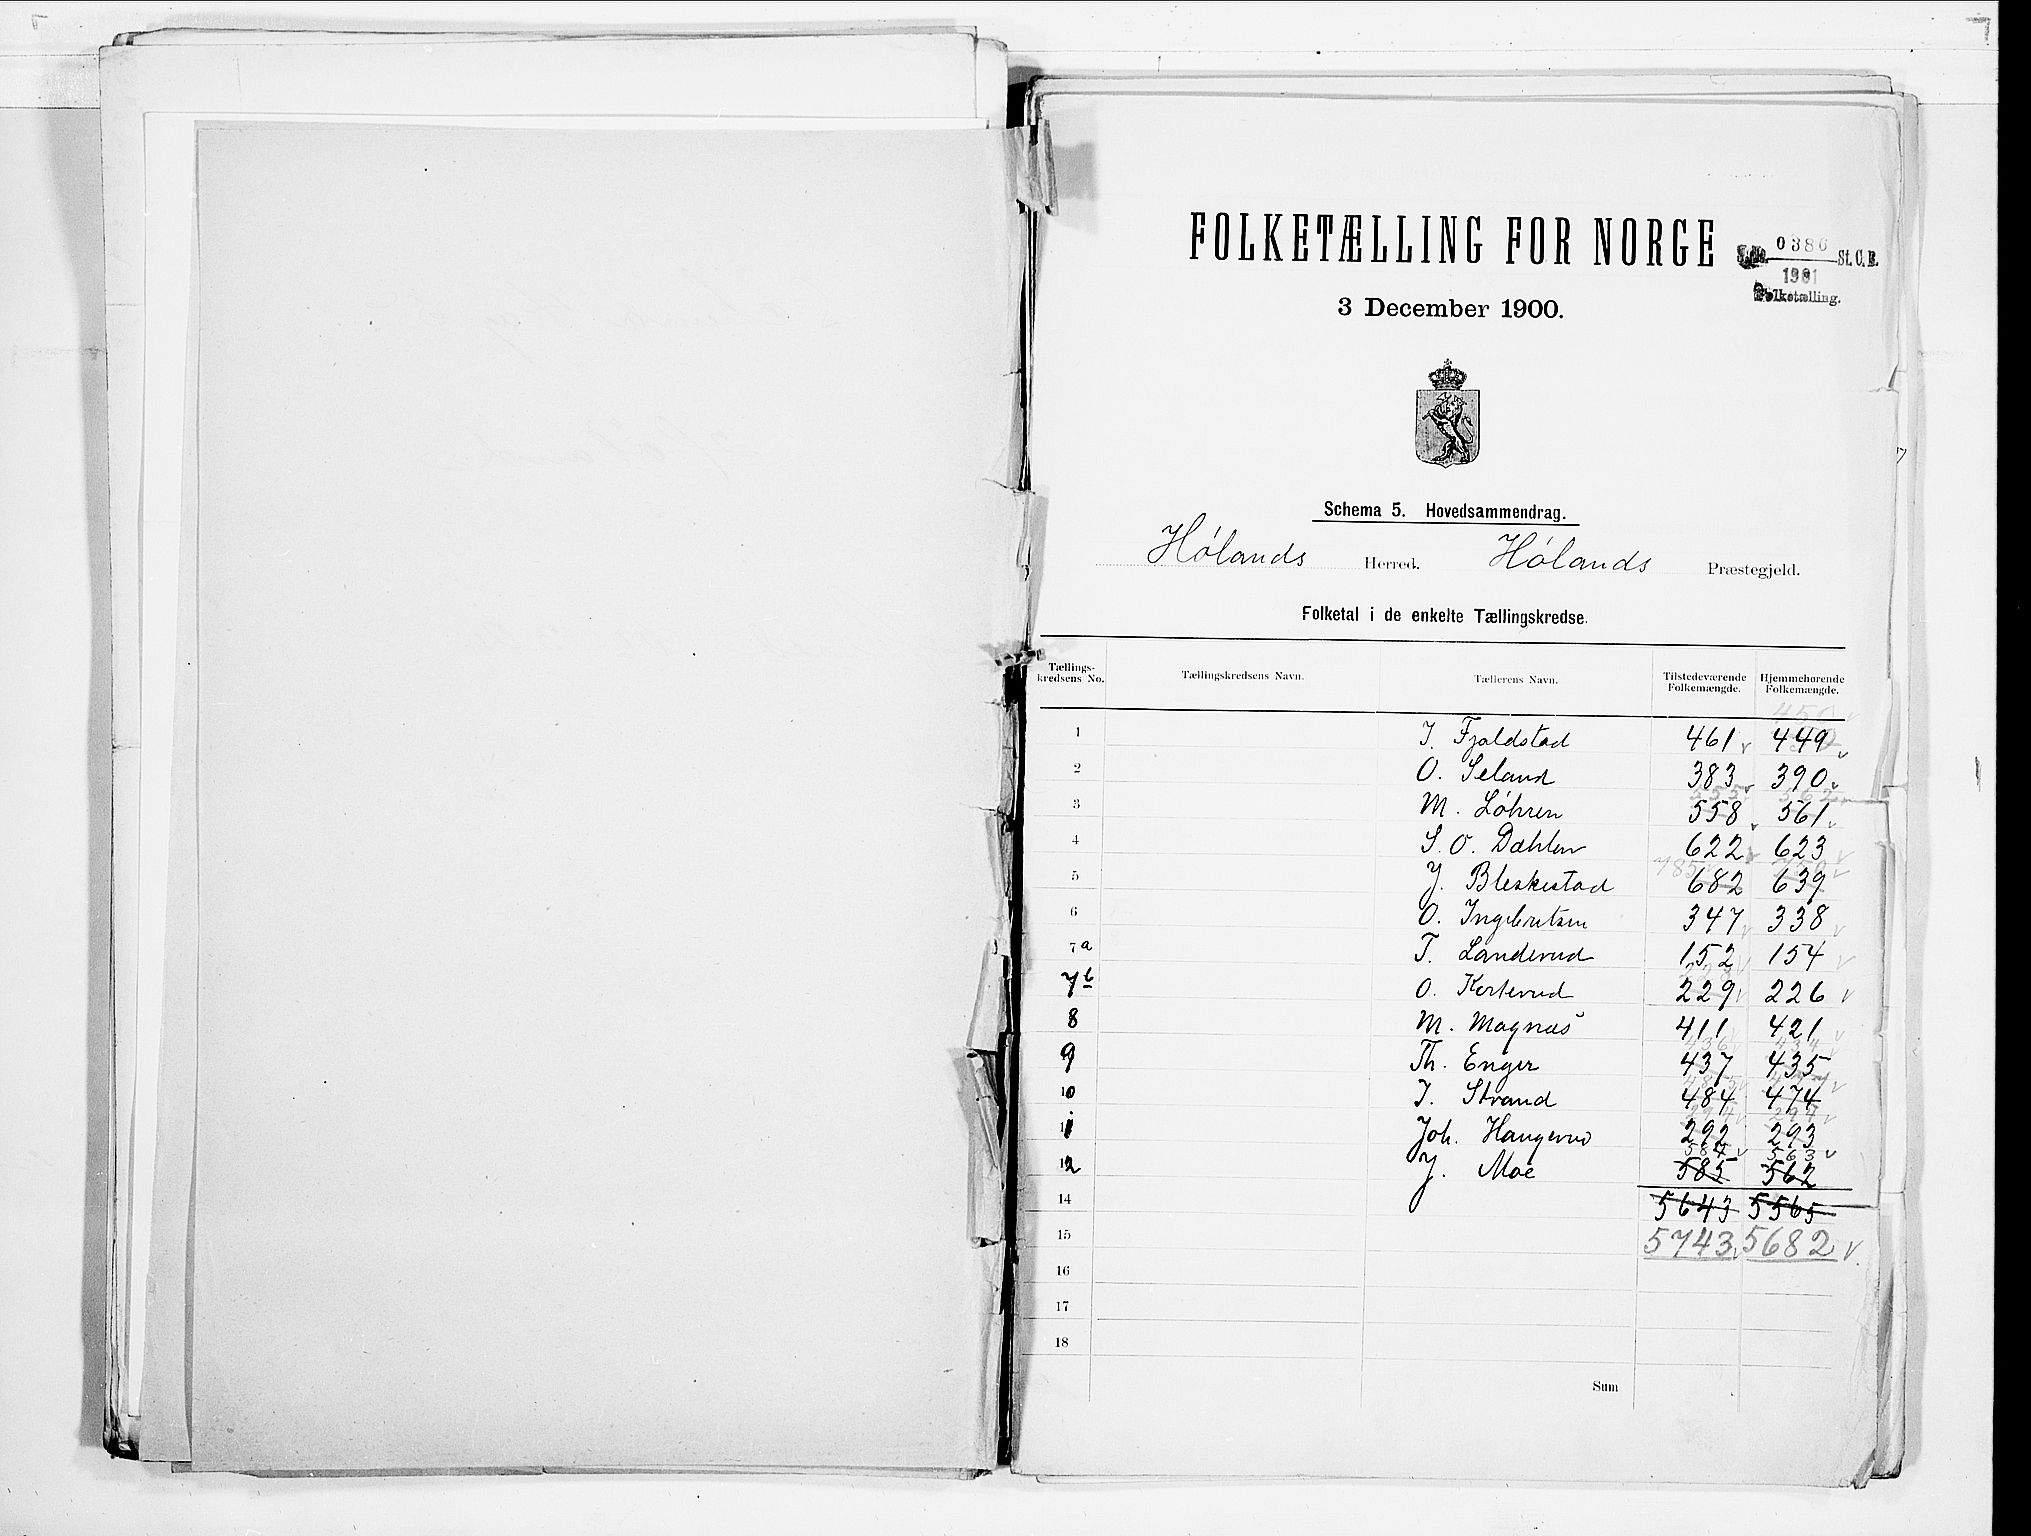 FOLKETÆLLING FOR NORGE
0380 St. C. B.
1901
Folketælling.
3 December 1900.
Schema 5. Hovedsammendrag.
Hølands Herred. Hølands Præstegjeld.
Folketal i de enkelte Tællingskredse.
Tællings-kredsens No. Tællingskredsens Navn. Tællerens Navn. Tilstedeværende Folkemængde. Hjemmehørende Folkemængde.
1 J. Fjeldstad 461 449
2 O. Seland 383 390
3 M. Løhren 558 561
4 S. O. Dahlen 622 623
5 J. Bleskestad 682 639
6 O. Ingebretsen 347 338
7a T. Landerud 152 154
7b O. Korterud 229 226
8 M. Magnæs 411 421
9 Th. Enger 437 435
10 J. Strand 484 474
11 Joh. Haugerud 292 293
584 563
12 J. Moe 585 562
14 5643 5565
15 5743 5682
16
17
18
Sum